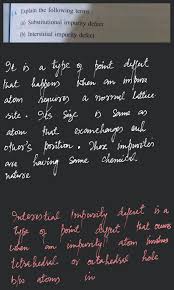 Explain the following terms
(a) Substitutional impurity defect
(b) Interstitial impurity defect
It is a type of point defect
that happens when an impure
atom requires a normal lattice
site. Its size is same as
atom that exchanges each
other's position. These impurities
are having same chemical
nature
Interestial Impurity defect is a
type of point defect that occurs
when an impurity atom
tetrahedral or octahedral hole
b/w atoms in